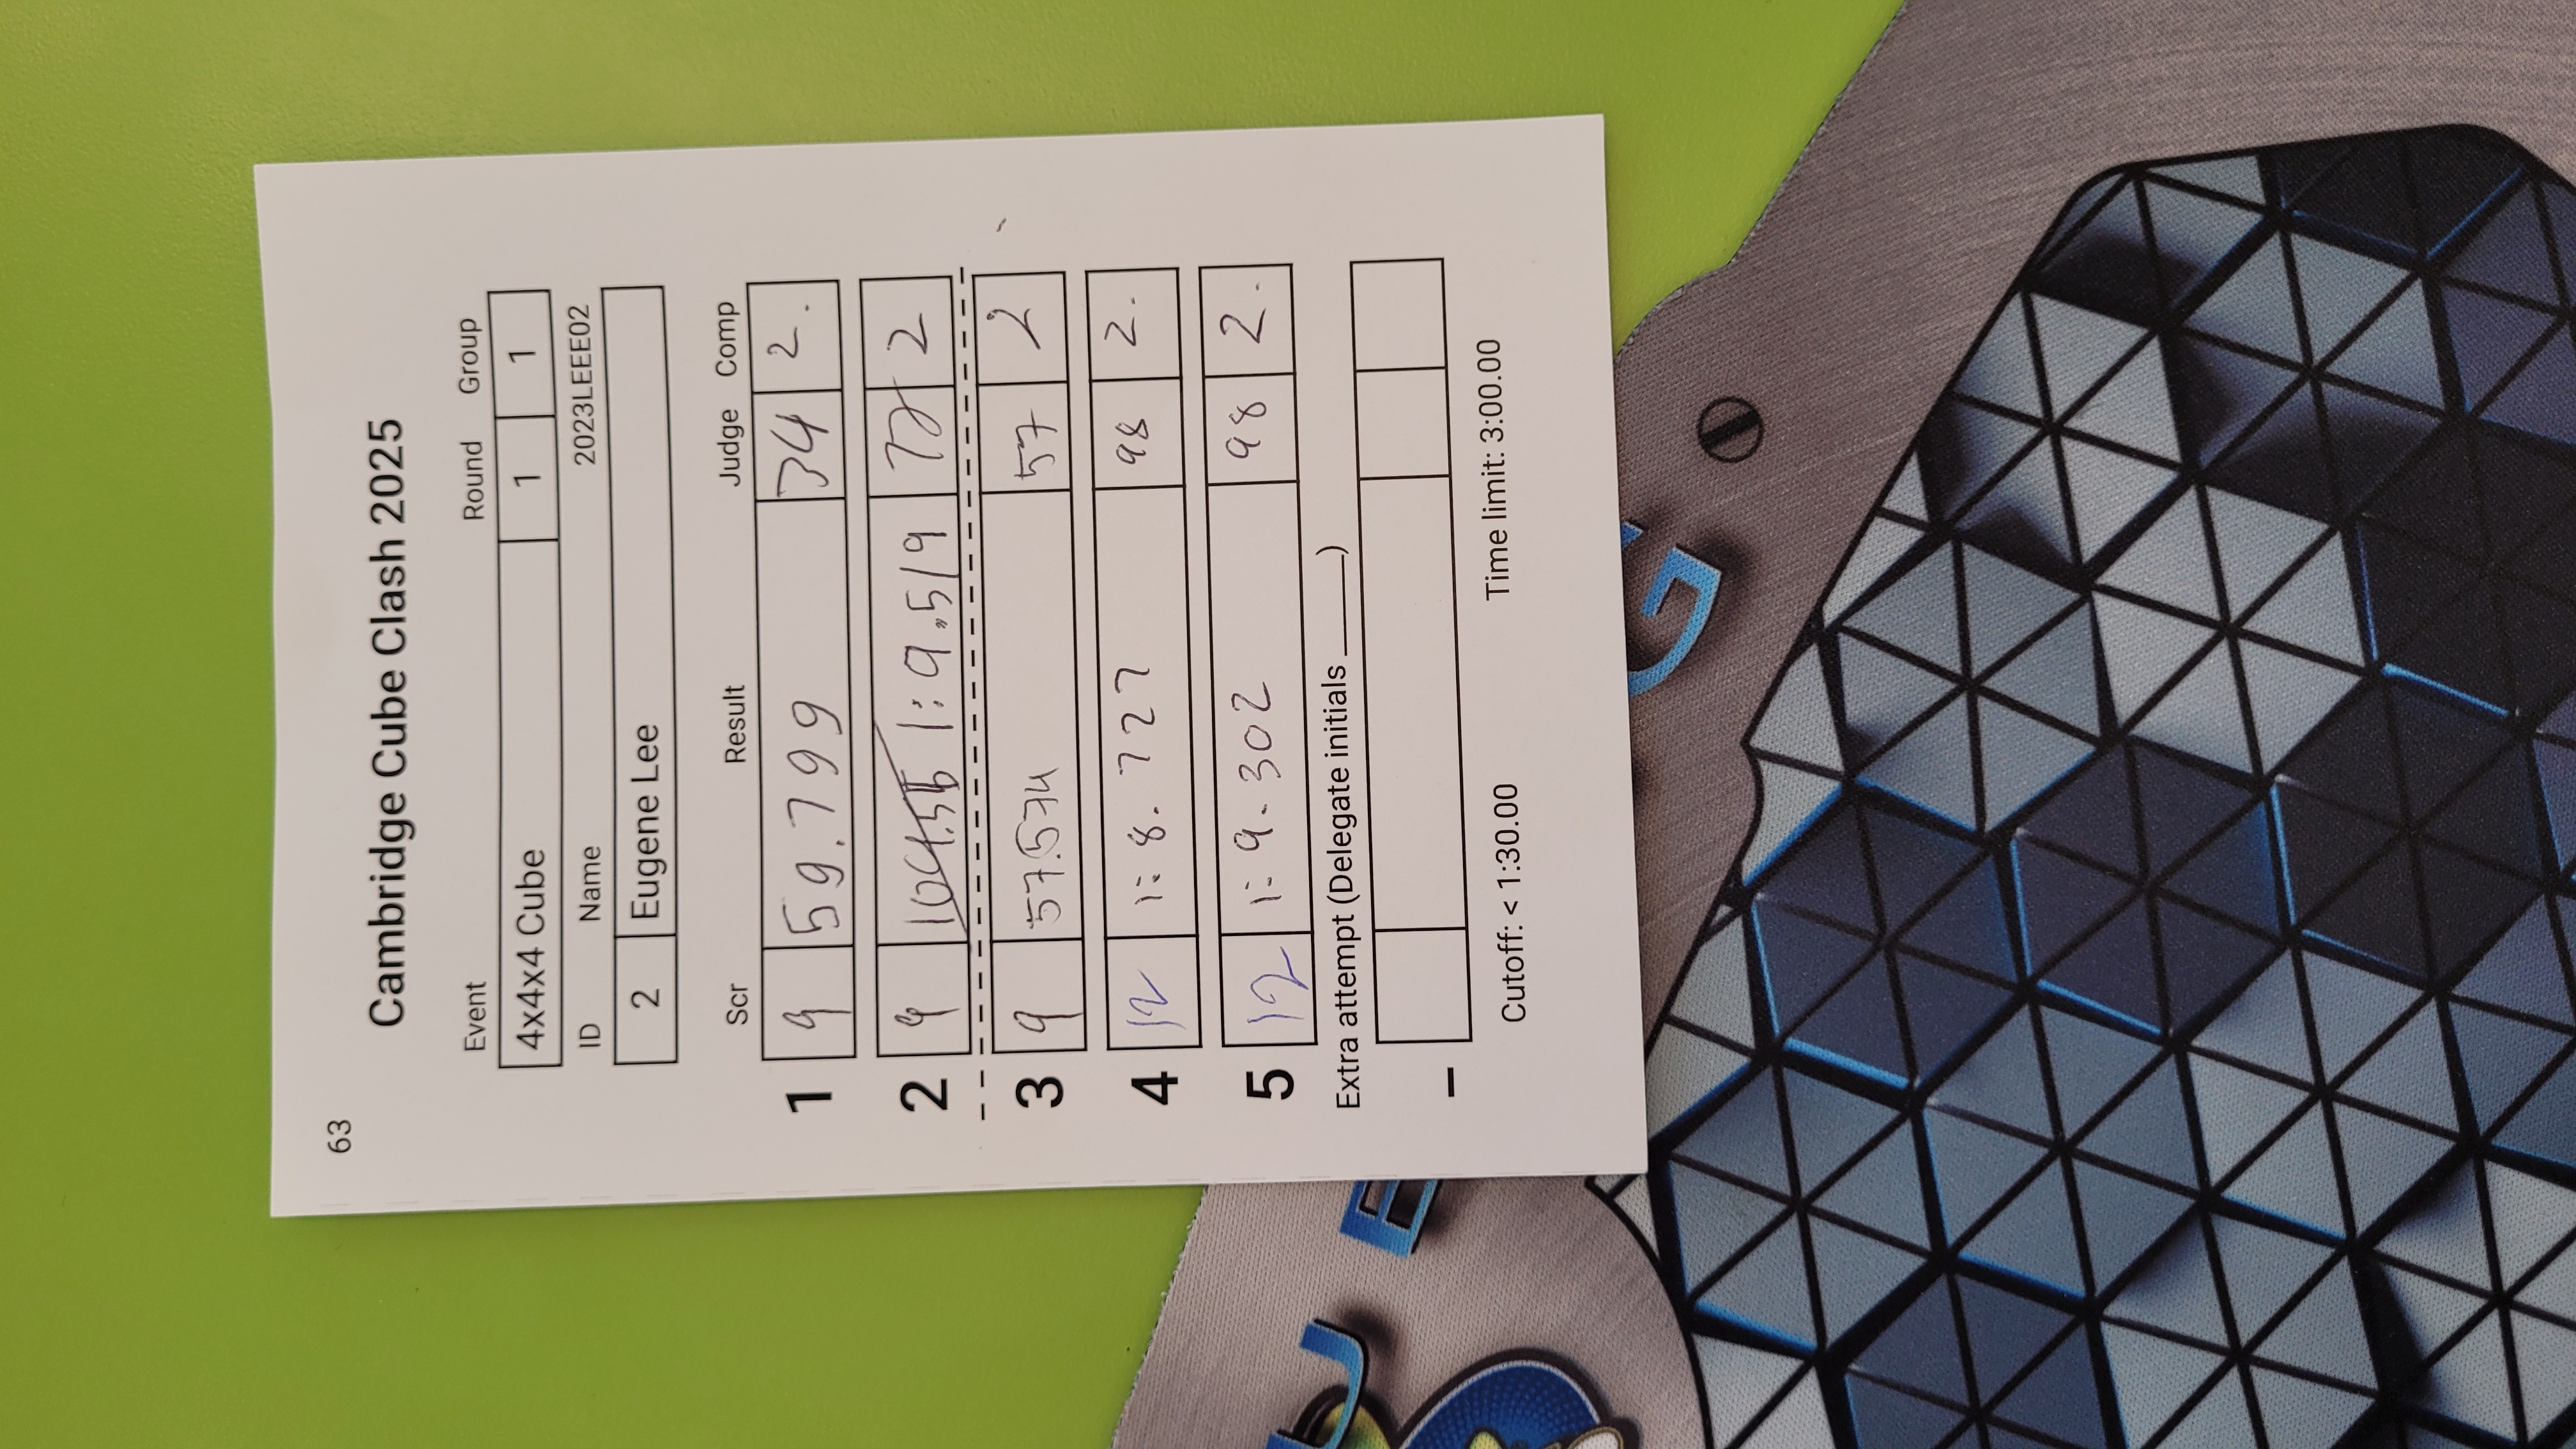 63
Cambridge Cube Clash 2025
Event Round Group
4x4x4 Cube 1 1
ID Name 2023LEEE02
2 Eugene Lee
Scr Result Judge Comp
1 9 59.799 34 2.
2 9 1:9.519 72 2
3 9 57.574 57 2
4 12 1:8.727 98 2.
5 12 1:9.302 98 2.
Extra attempt (Delegate initials ______)
–
Cutoff: < 1:30.00 Time limit: 3:00.00
U E
G